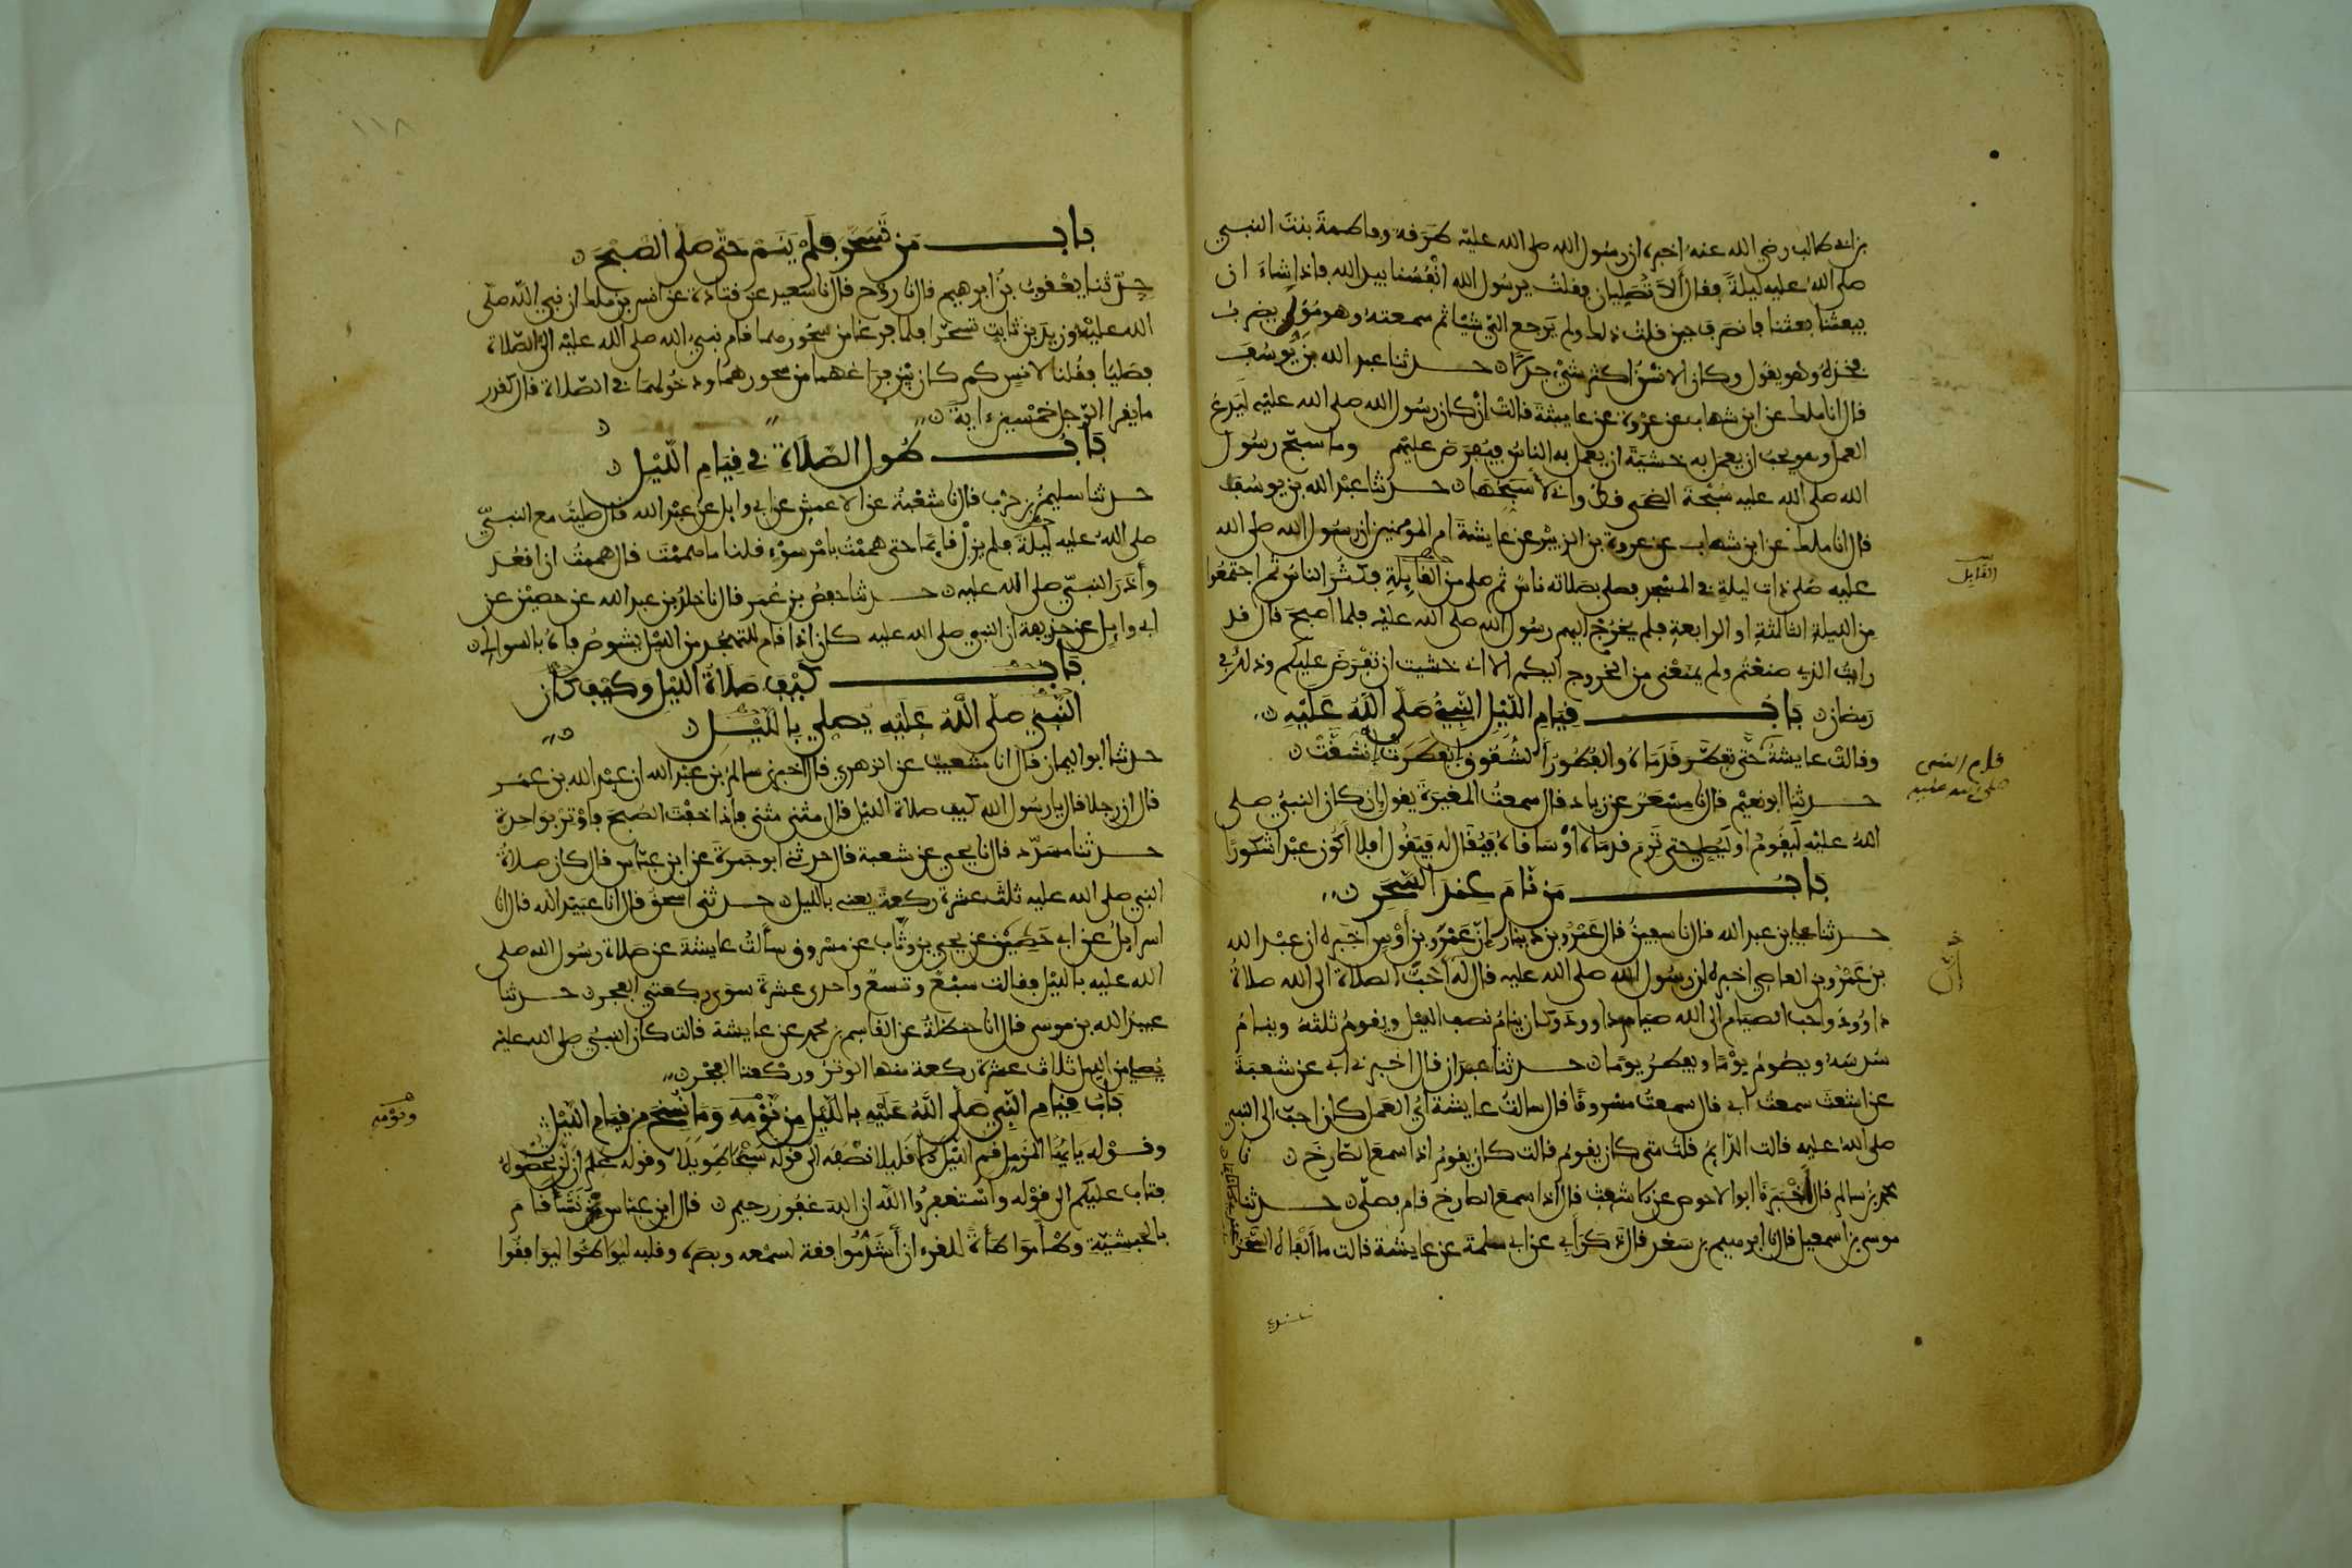 بن ابي طالب رضي الله عنه اخبره ان رسول الله صلى الله عليه طرقه وفاطمة بنت النبي
صلى الله عليه ليلة فقال ألا تصليان فقلت يرسول الله انفسنا بيد الله فاذا شاء ان
يبعثنا بعثنا فانصرف حين قلت ذلك ولم يرجع الي شيئا ثم سمعته وهو مول يضرب
فخذه وهو يقول وكان الانسن اكثر شيء جدلا حدثنا عبد الله بن يوسف
قال انا ملك عن ابن شهاب عن عروة عن عايشة قالت إن كان رسول الله صلى الله عليه ليدع
العمل وهو يحب ان يعمل به خشية ان يعمل به الناس فيفرض عليهم وما سبح رسول
الله صلى الله عليه سبحة الضحى قط واني لأسبحها حدثنا عبد الله بن يوسف
قال انا ملك عن ابن شهاب عن عروة بن الزبير عن عايشة ام المومنين ان رسول الله صلى الله
عليه صلى ذات ليلة في المسجد فصلى بصلاته ناس ثم صلى من القابلة فكثر الناس ثم اجتمعوا
من الليلة الثالثة او الرابعة فلم يخرج اليهم رسول الله صلى الله عليه فلما اصبح قال قد
رايت الذي صنعتم ولم يمنعني من الخروج اليكم الا اني خشيت ان تفرض عليكم وذلك في
رمضان باب قيام الليل النبي صلى الله عليه
وقالت عايشة حتى تفطر قدماه والفطور الشقوق انفطرت انشقت
حدثنا ابو نعيم قال نا مسعر عن زياد قال سمعت المغيرة يقول إن كان النبي صلى
الله عليه ليقوم او ليصلي حتى ترم قدماه أو ساقاه فيقال له فيقول أفلا أكون عبدا شكورا
باب من نام عند السحر
حدثنا علي بن عبد الله قال نا سفين قال عمرو بن دينار إن عمرو بن أوس اخبره ان عبد الله
بن عمرو بن العاصي اخبره ان رسول الله صلى الله عليه قال له أحب الصلاة الى الله صلاة
داوود واحب الصيام الى الله صيام داوود وكان ينام نصف الليل ويقوم ثلثه وينام
سدسه ويصوم يوما ويفطر يوما حدثنا عبدان قال اخبرني ابي عن شعبة
عن اشعث سمعت ابي قال سمعت مسروقا قال سالت عايشة اي العمل كان احب الى النبي
صلى الله عليه قالت الدايم قلت متى كان يقوم قالت كان يقوم اذا سمع الصارخ نا
محمد بن سالم قال أخبرنا ابو الاحوص عن اشعث قال اذا سمع الصارخ قام فصلى حدثنا
موسى بن اسمعيل قال نا ابرهيم بن سعد قال ذكر ابي عن ابي سلمة عن عايشة قالت ما ألفاه السحر
القابل
قيام النبي
صلى الله عليه
١١٨
باب من تسحر فلم ينم حتى صلى الصبح
حدثنا يعقوب بن ابرهيم قال نا روح قال نا سعيد عن قتادة عن انس بن ملك ان نبي الله صلى
الله عليه وزيد بن ثابت تسحرا فلما فرغا من سحورهما قام نبي الله صلى الله عليه الى الصلاة
فصليا فقلنا لانس كم كان بين فراغهما من سحورهما ودخولهما في الصلاة قال كقدر
ما يقرا الرجل خمسين ءاية
باب طول الصلاة في قيام الليل
حدثنا سليمن بن حرب قال نا شعبة عن الاعمش عن ابي وايل عن عبد الله قال صليت مع النبي
صلى الله عليه ليلة فلم يزل قايما حتى هممت بامر سوء قلنا ما هممت قال هممت ان اقعد
وأذر النبي صلى الله عليه حدثنا حفص بن عمر قال نا خلد بن عبد الله عن حصين عن
ابي وايل عن حذيفة ان النبي صلى الله عليه كان اذا قام للتهجد من الليل يشوص فاه بالسواك
باب كيف صلاة الليل وكيف كان
النبي صلى الله عليه يصلي بالليل
حدثنا ابو اليمان قال انا شعيب عن الزهري قال اخبرني سالم بن عبد الله ان عبد الله بن عمر
قال ان رجلا قال يا رسول الله كيف صلاة الليل قال مثنى مثنى فاذا خفت الصبح فاوتر بواحدة
حدثنا مسدد قال نا يحيى عن شعبة قال حدثني ابو جمرة عن ابن عباس قال كان صلاة
النبي صلى الله عليه ثلث عشرة ركعة يعني بالليل حدثني اسحق قال انا عبيد الله قال انا
اسرايل عن ابي حصين عن يحيى بن وثاب عن مسروق سألت عايشة عن صلاة رسول الله صلى
الله عليه بالليل فقالت سبع وتسع واحدى عشرة سوى ركعتي الفجر حدثنا
عبيد الله بن موسى قال انا حنظلة عن القاسم بن محمد عن عايشة قالت كان النبي صلى الله عليه
يصلي من الليل ثلاث عشرة ركعة منها الوتر وركعتا الفجر
باب قيام النبي صلى الله عليه بالليل من نومه وما نسخ من قيام الليل
وقوله يايها المزمل قم الليل الا قليلا نصفه الى قوله سبحا طويلا وقوله علم ان لن تحصوه
فتاب عليكم الى قوله واستغفروا الله ان الله غفور رحيم قال ابن عباس نشأ قام
بالحبشية وطاء مواطأة للقرءان أشد موافقة لسمعه وبصره وقلبه ليواطئوا ليوافقوا
ونومه